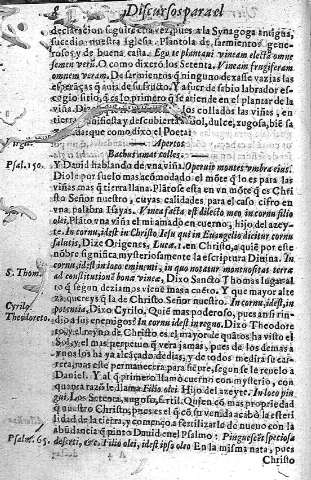 Discursos para el
declaracion seguira otra vez, pues a la Synagoga antigua,
sucedio nuestra Iglesia. Plantola de sarmientos gene-
rosos, y de buena casta. Ego te plantavi vineam electã omne
semen verũ. O como dixerõ los Setenta. Vineam frugiferam
omnem veram. De sarmientos q̃ ninguno dexasse vazias las
esperãças q̃ auia de su fruto. Y a fuer de sabio labrador es-
cogio sitio, q̃ es lo primero q̃ se atiende en el plantar de la
viña los collados las viñas, en
tierra y descubierta sol, dulce, xugosa, biẽ sa
que como dixo el Poeta:
Apertos
Bachus amat colles.
Psal. 150.
Y Dauid hablando de vna viña. Operuit montes vmbra eius.
Diole por suelo mas acomodado el mõte q̃ lo es para las
viñas mas q̃ tierra llana. Plãtose esta en vn mõte q̃ es Chri
sto Señor nuestro, cuyas calidades para el caso cifro en
vna palabra Isayas. Vinea facta est dilecto meo in cornu filio
olei, Plãto vna viña el mi amado en cuerno, hijo de azey-
te. In cornu, idest in Christo Iesu qui in Euangelio dicitur cornu
salutis, Dize Origenes, Luca. 1. en Christo, a quiẽ por este
nõbre significa mysteriosamente la escriptura Diuina. In
cornu, idest in loco eminenti, in quo notatur montuositas terræ
S. Thom.
ad constitutionẽ bona vineæ, Dize Sancto Thomas lugar al-
to q̃ segun deziamos viene mas a cuẽto. Y que mayor alte
za quereys q̃ la de Christo Señor nuestro. In cornu, idest, in
Cyrilo
potencia, Dixo Cyrilo, Quiẽ mas poderoso, pues ansi rin-
Theodoreto.
dio a sus enemigos? In cornu idest in regno. Dixo Theodore
to, y el reyno de Christo es el mayor de quãtos ha visto el
Sol, y el mas perpetuo q̃ vera jamas, pues de los demas a
vnos los ha ya alcãçado dedias, y de todos medira su car-
rera, mas este permanecera para siẽpre, segun se le reuelo a
Daniel. Y al q̃ primero llamò cuerno con mysterio, con
quãta razõ le llama Filio olei Hijo del azeyte. In loco pin-
gui. Los Setenta, xugoso, fertil. Quien cõ mas propriedad
q̃ nuestro Christo, pues es el q̃ cõ su venida acabò la esteri
lidad de la tierra, y començo a fertilizarlo de nueuo con la
abũdancia q̃ pinto Dauid en el Psalmo: Pinguescẽt speciosa
Psalm. 65.
deserti, &c. Filio olei, idest ipso oleo En la misma nata, pues
Christo